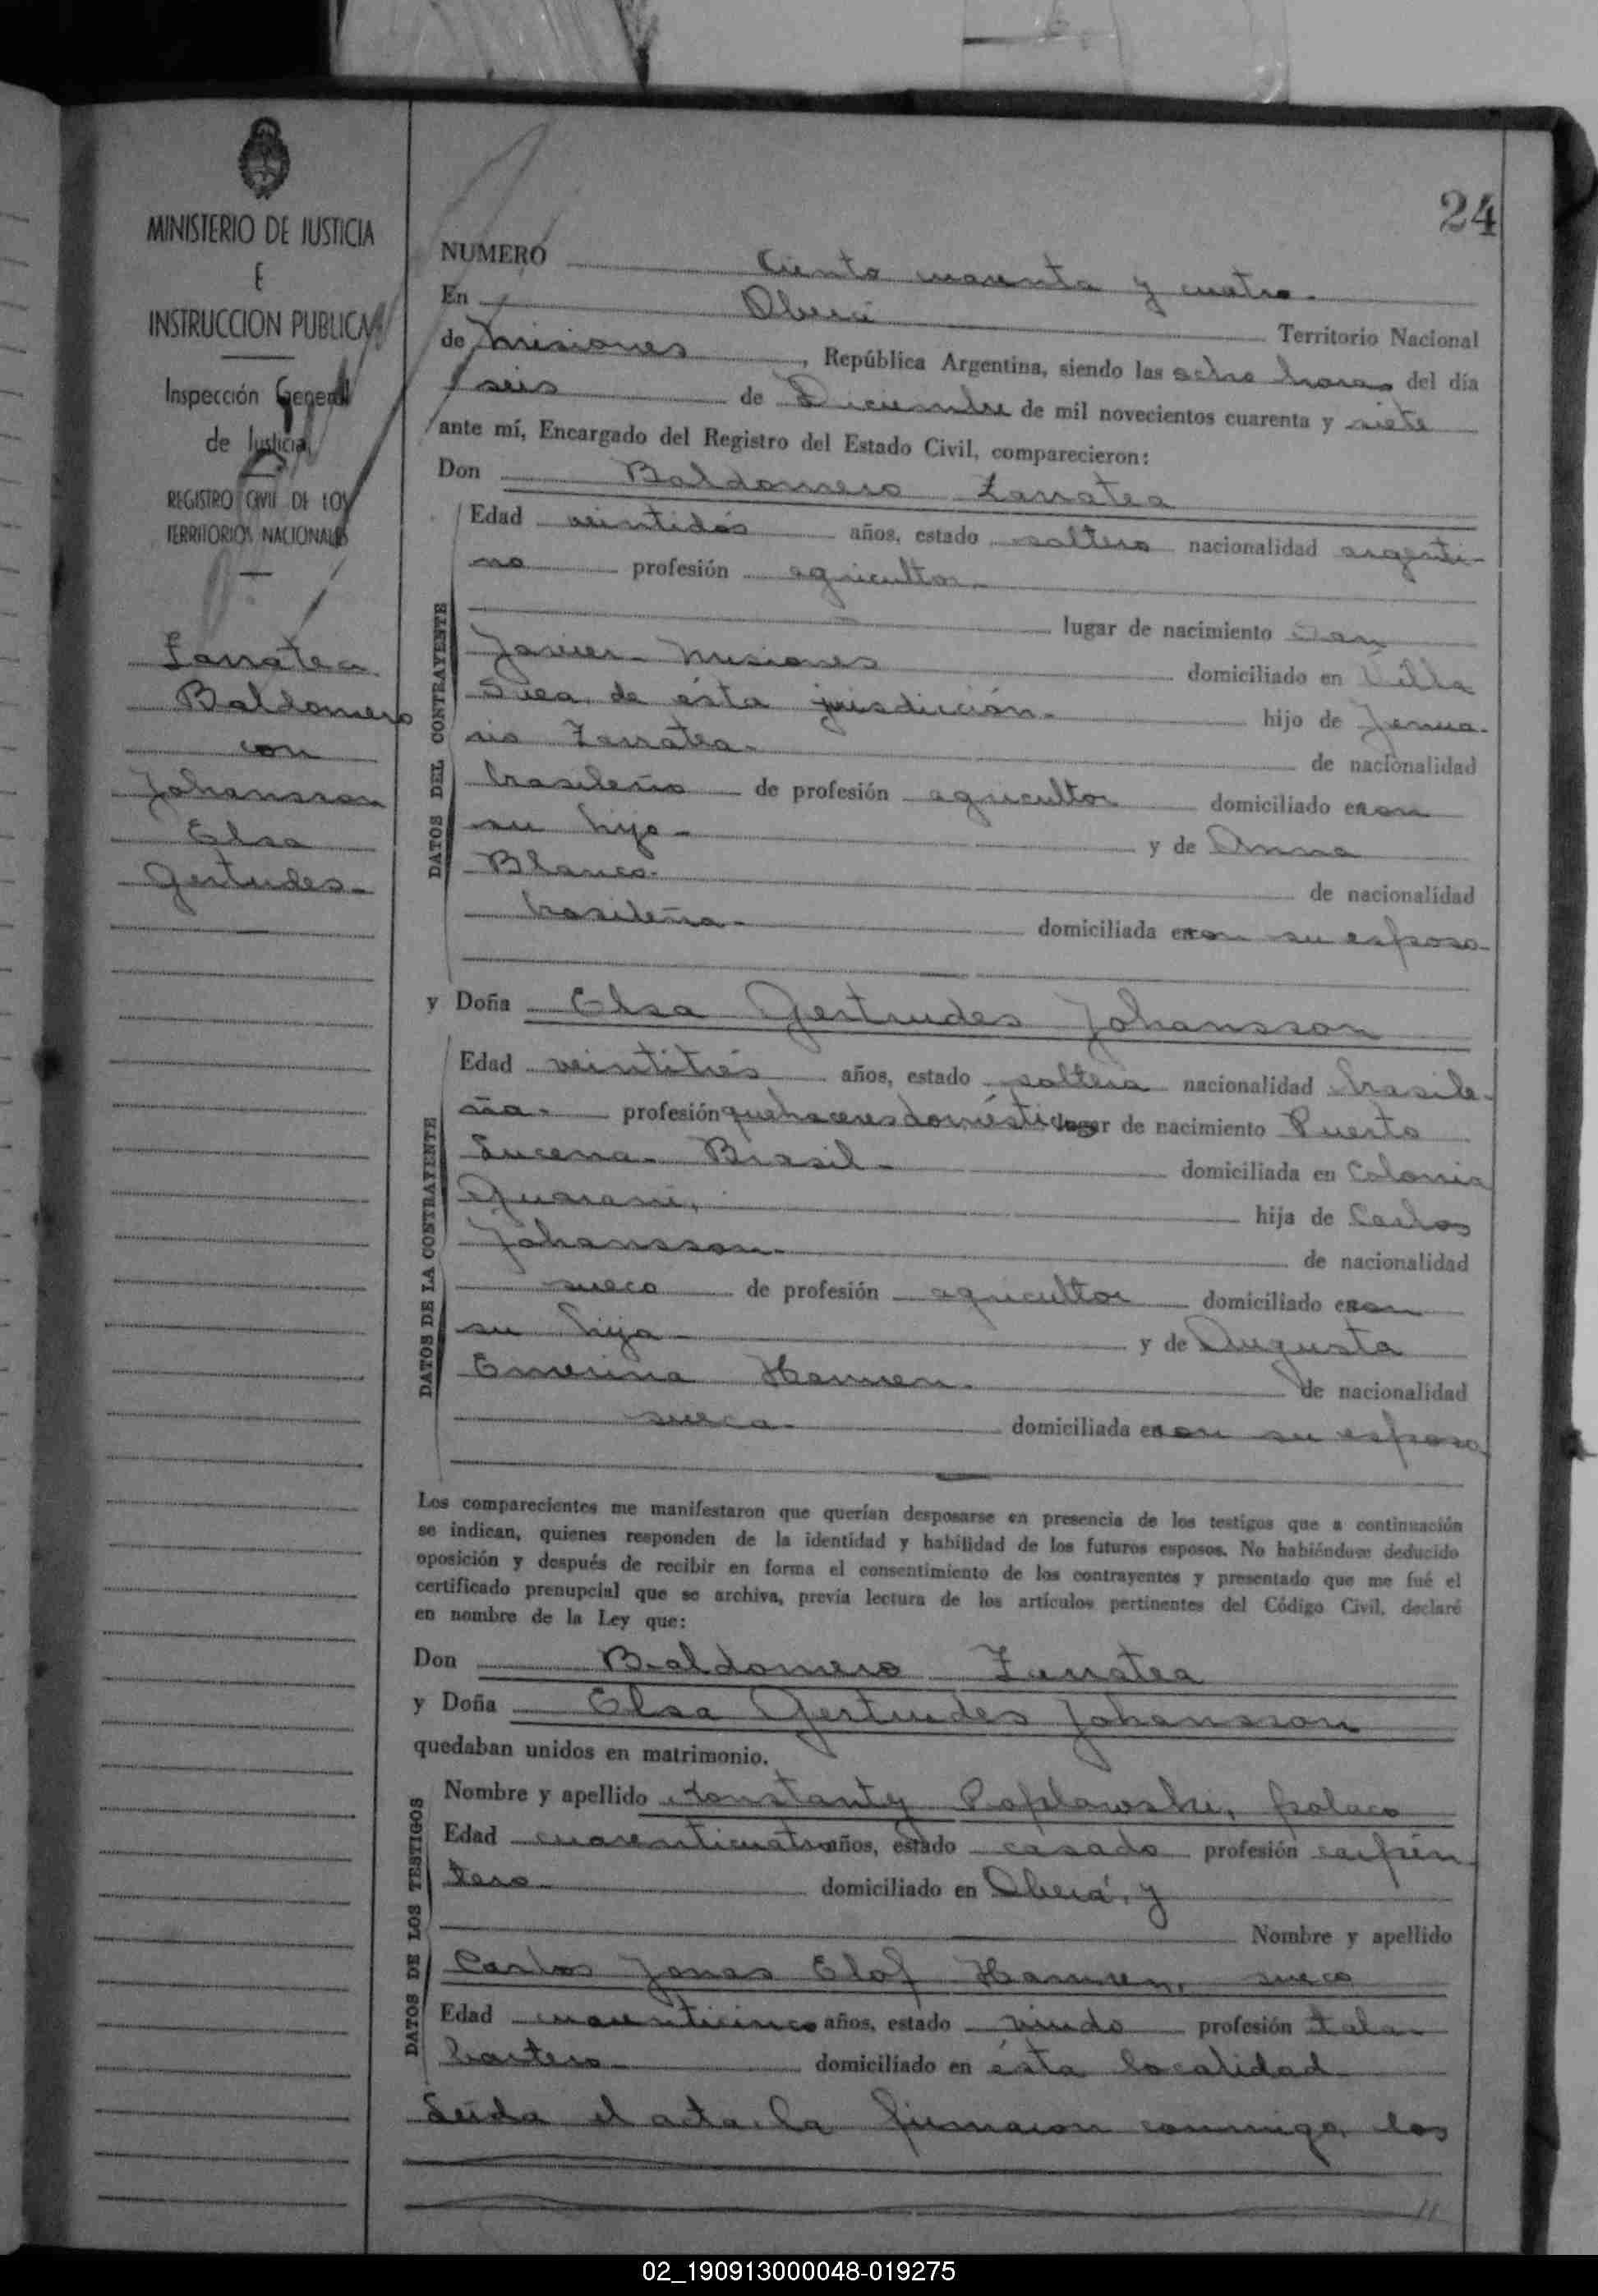 24
MINISTERIO DE JUSTICIA
E
INSTRUCCION PUBLICA
Inspección General
de Justicia
REGISTRO CIVIL DE LOS
TERRITORIOS NACIONALES
Zarratea
Baldomero
con
Johansson
Elsa
Gertudes-
NUMERO Ciento cuarenta y cuatro-
En Oberá Territorio Nacional
de Misiones, República Argentina, siendo las ocho horas del día
seis de Diciembre de mil novecientos cuarenta y siete
ante mí, Encargado del Registro del Estado Civil, comparecieron:
Don Baldomero Zarratea
DATOS DEL CONTRAYENTE
Edad veintidós años, estado soltero nacionalidad argenti-
no profesión agricultor-
lugar de nacimiento San
Javier- Misiones domiciliado en Villa
Svea, de ésta jurisdicción- hijo de Jenua-
rio Zarratea- de nacionalidad
brasileño de profesión agricultor domiciliado con
su hijo- y de Anna
Blanco- de nacionalidad
brasileña- domiciliada con su esposo-
y Doña Elsa Gertrudes Johansson
DATOS DE LA CONTRAYENTE
Edad veintitrés años, estado soltera nacionalidad brasile-
ña- profesión quehaceres domésticos lugar de nacimiento Puerto
Lucena- Brasil- domiciliada en Colonia
Guaraní, hija de Carlos
Johansson- de nacionalidad
sueco de profesión agricultor domiciliado con
su hija- y de Augusta
Emerina Hamren- de nacionalidad
sueca- domiciliada con su esposo
Los comparecientes me manifestaron que querían desposarse en presencia de los testigos que a continuación
se indican, quienes responden de la identidad y habilidad de los futuros esposos. No habiéndose deducido
oposición y después de recibir en forma el consentimiento de los contrayentes y presentado que me fué el
certificado prenupcial que se archiva, previa lectura de los artículos pertinentes del Código Civil, declaré
en nombre de la Ley que:
Don Baldomero Zarratea
y Doña Elsa Gertrudes Johansson
quedaban unidos en matrimonio.
DATOS DE LOS TESTIGOS
Nombre y apellido Konstanty Poplawski, polaco
Edad cuarenticuatro años, estado casado profesión carpin
tero- domiciliado en Oberá, y
Nombre y apellido
Carlos Jonas Elof Hamren, sueco
Edad cuarenticinco años, estado viudo profesión tala-
bartero- domiciliado en ésta localidad
Leída el acta la firmaron conmigo, los
02_190913000048-019275